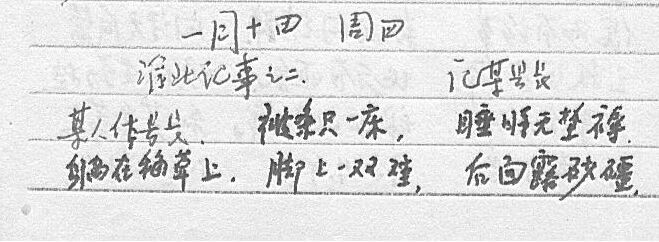 一月十四 周四
淮北记事之二 记某号长
某人作号长, 被条只一床, 睡时无垫褥.
躺在稻草上, 脚上一双鞋, 后面露砂礓,